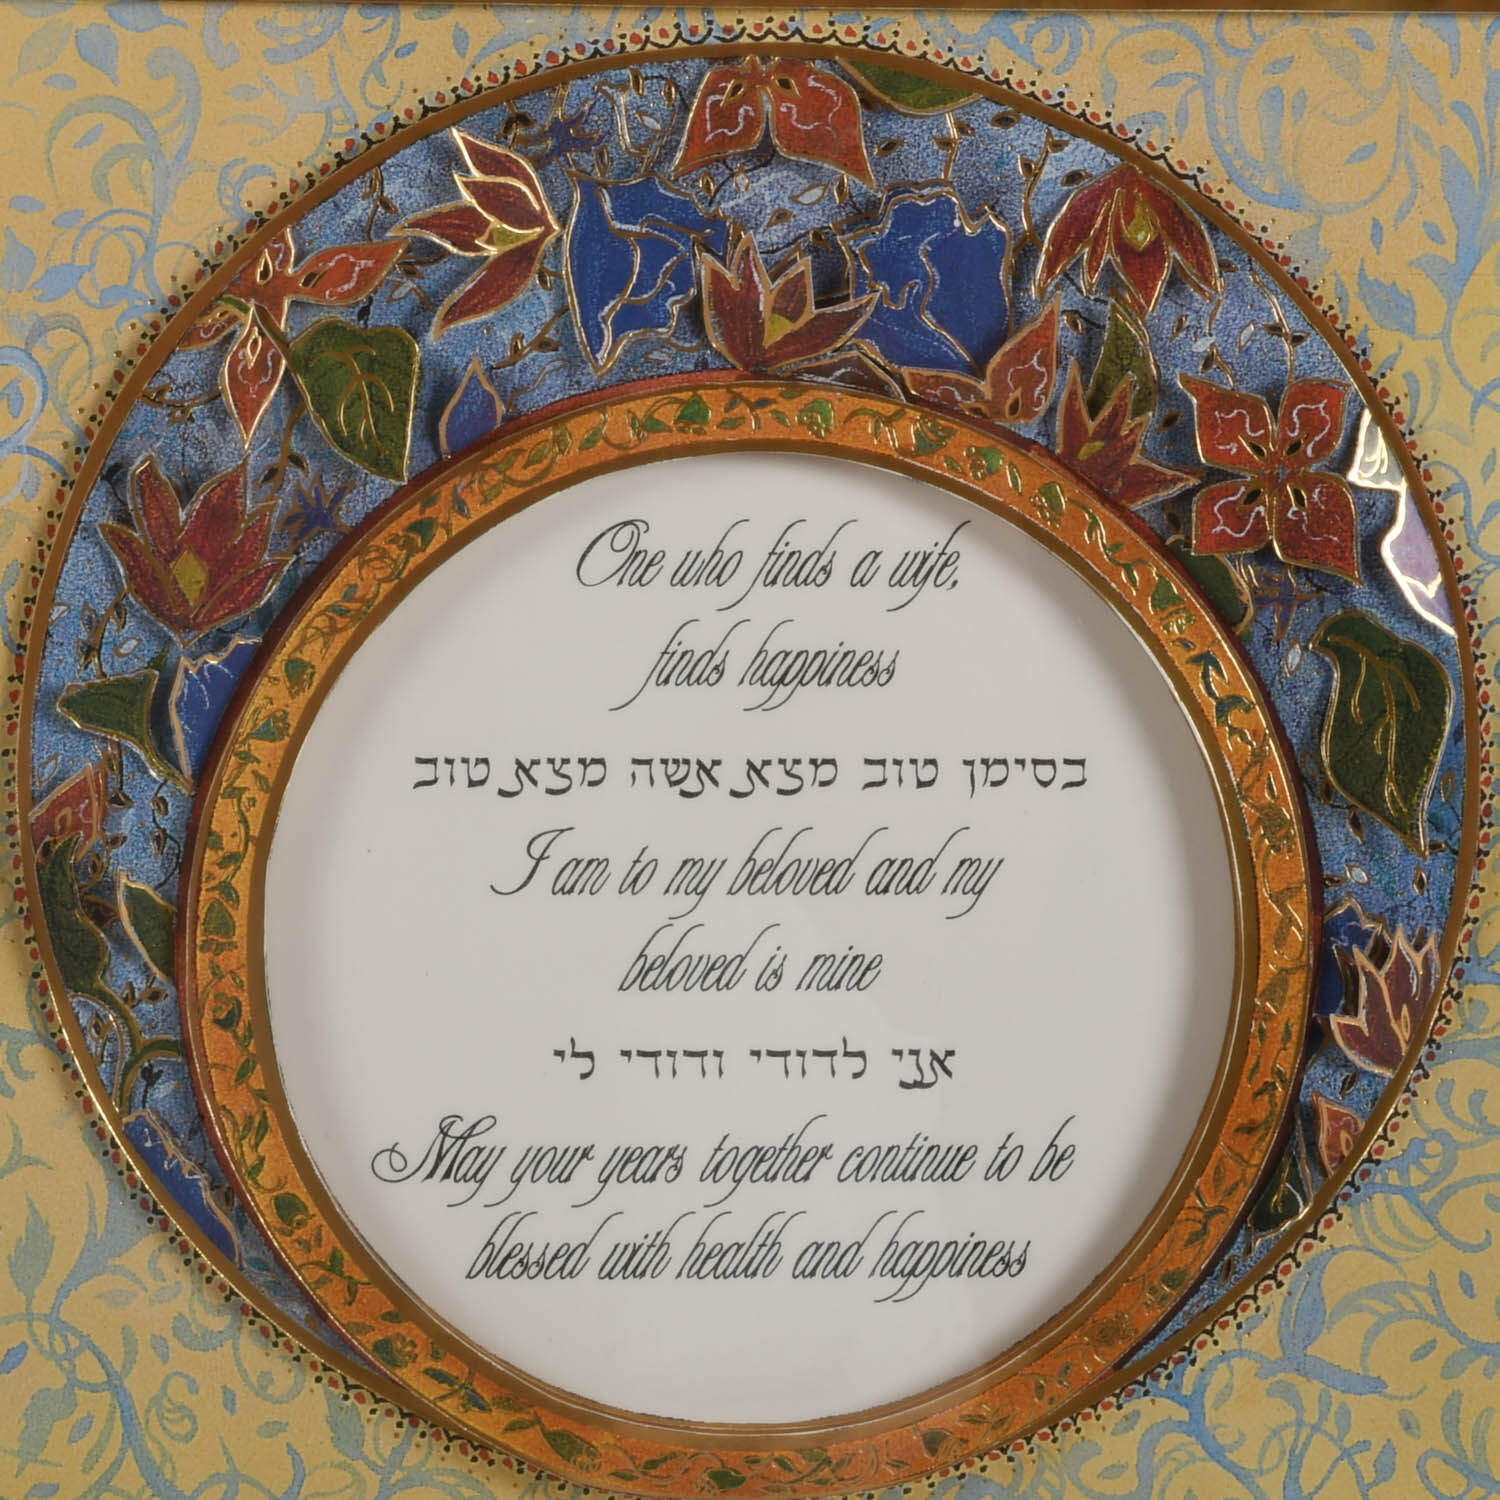 One who finds a wife,
finds happiness
בסימן טוב מצא אשה מצא טוב
I am to my beloved and my
beloved is mine
אני לדודי ודודי לי
May your years together continue to be
blessed with health and happiness